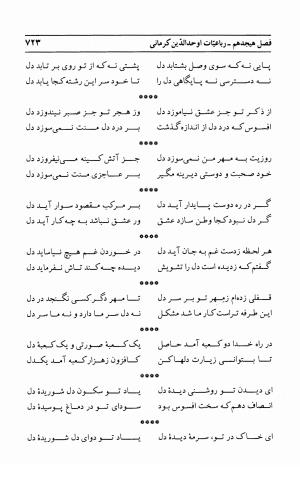 فصل هیجدهم ـ رباعیّات اوحدالدّین کرمانی ۷۲۳
پایی نه که سوی وصل بشتابد دل پشتی نه که از تو روی بر تابد دل
نه دسترسی نه پایگاهی دل را تا خود سر این رشته کجا یابد دل
****
از ذکر تو جز عشق نیاموزد دل وز هجر تو جز صبر نیندوزد دل
افسوس که درد دل از اندازه گذشت بر درد دل منت نمی‌سوزد دل
****
روزیت به مهر من نمی‌سوزد دل جز آتش کینه می‌نیفروزد دل
خود صحبت و دوستی دیرینه مگیر بر عاجزی منت نمی‌سوزد دل
****
گر در ره دوست پایدار آید دل بر مرکب مقصود سوار آید دل
گر دل نبود کجا وطن سازد عشق ور عشق نباشد به چه کار آید دل
****
هر لحظه زدست غم به جان آید دل در خوردن غم هیچ نیاساید دل
گفتم که زدیده است دل را تشویش دیده چه کند تاش نفرماید دل
****
قفلی زده‌ام زمهر تو بر سر دل تا مهر دگر کسی نگنجد در دل
این طرفه تراست کار ما شد مشکل نه دل سر ما دارد و نه ما سر دل
****
در راه خدا دو کعبه آمد حاصل یک کعبهٔ صورتی و یک کعبهٔ دل
تا بتوانی زیارت دلها کن کافزون زهزار کعبه آمد یکدل
****
ای دیدن تو روشنی دیدهٔ دل یاد تو سکون دل شوریدهٔ دل
انصاف دهم که سخت افسوس بود سودای تو در دماغ پوسیدهٔ دل
****
ای خاک در تو، سرمهٔ دیدهٔ دل یاد تو دوای دل شوریدهٔ دل